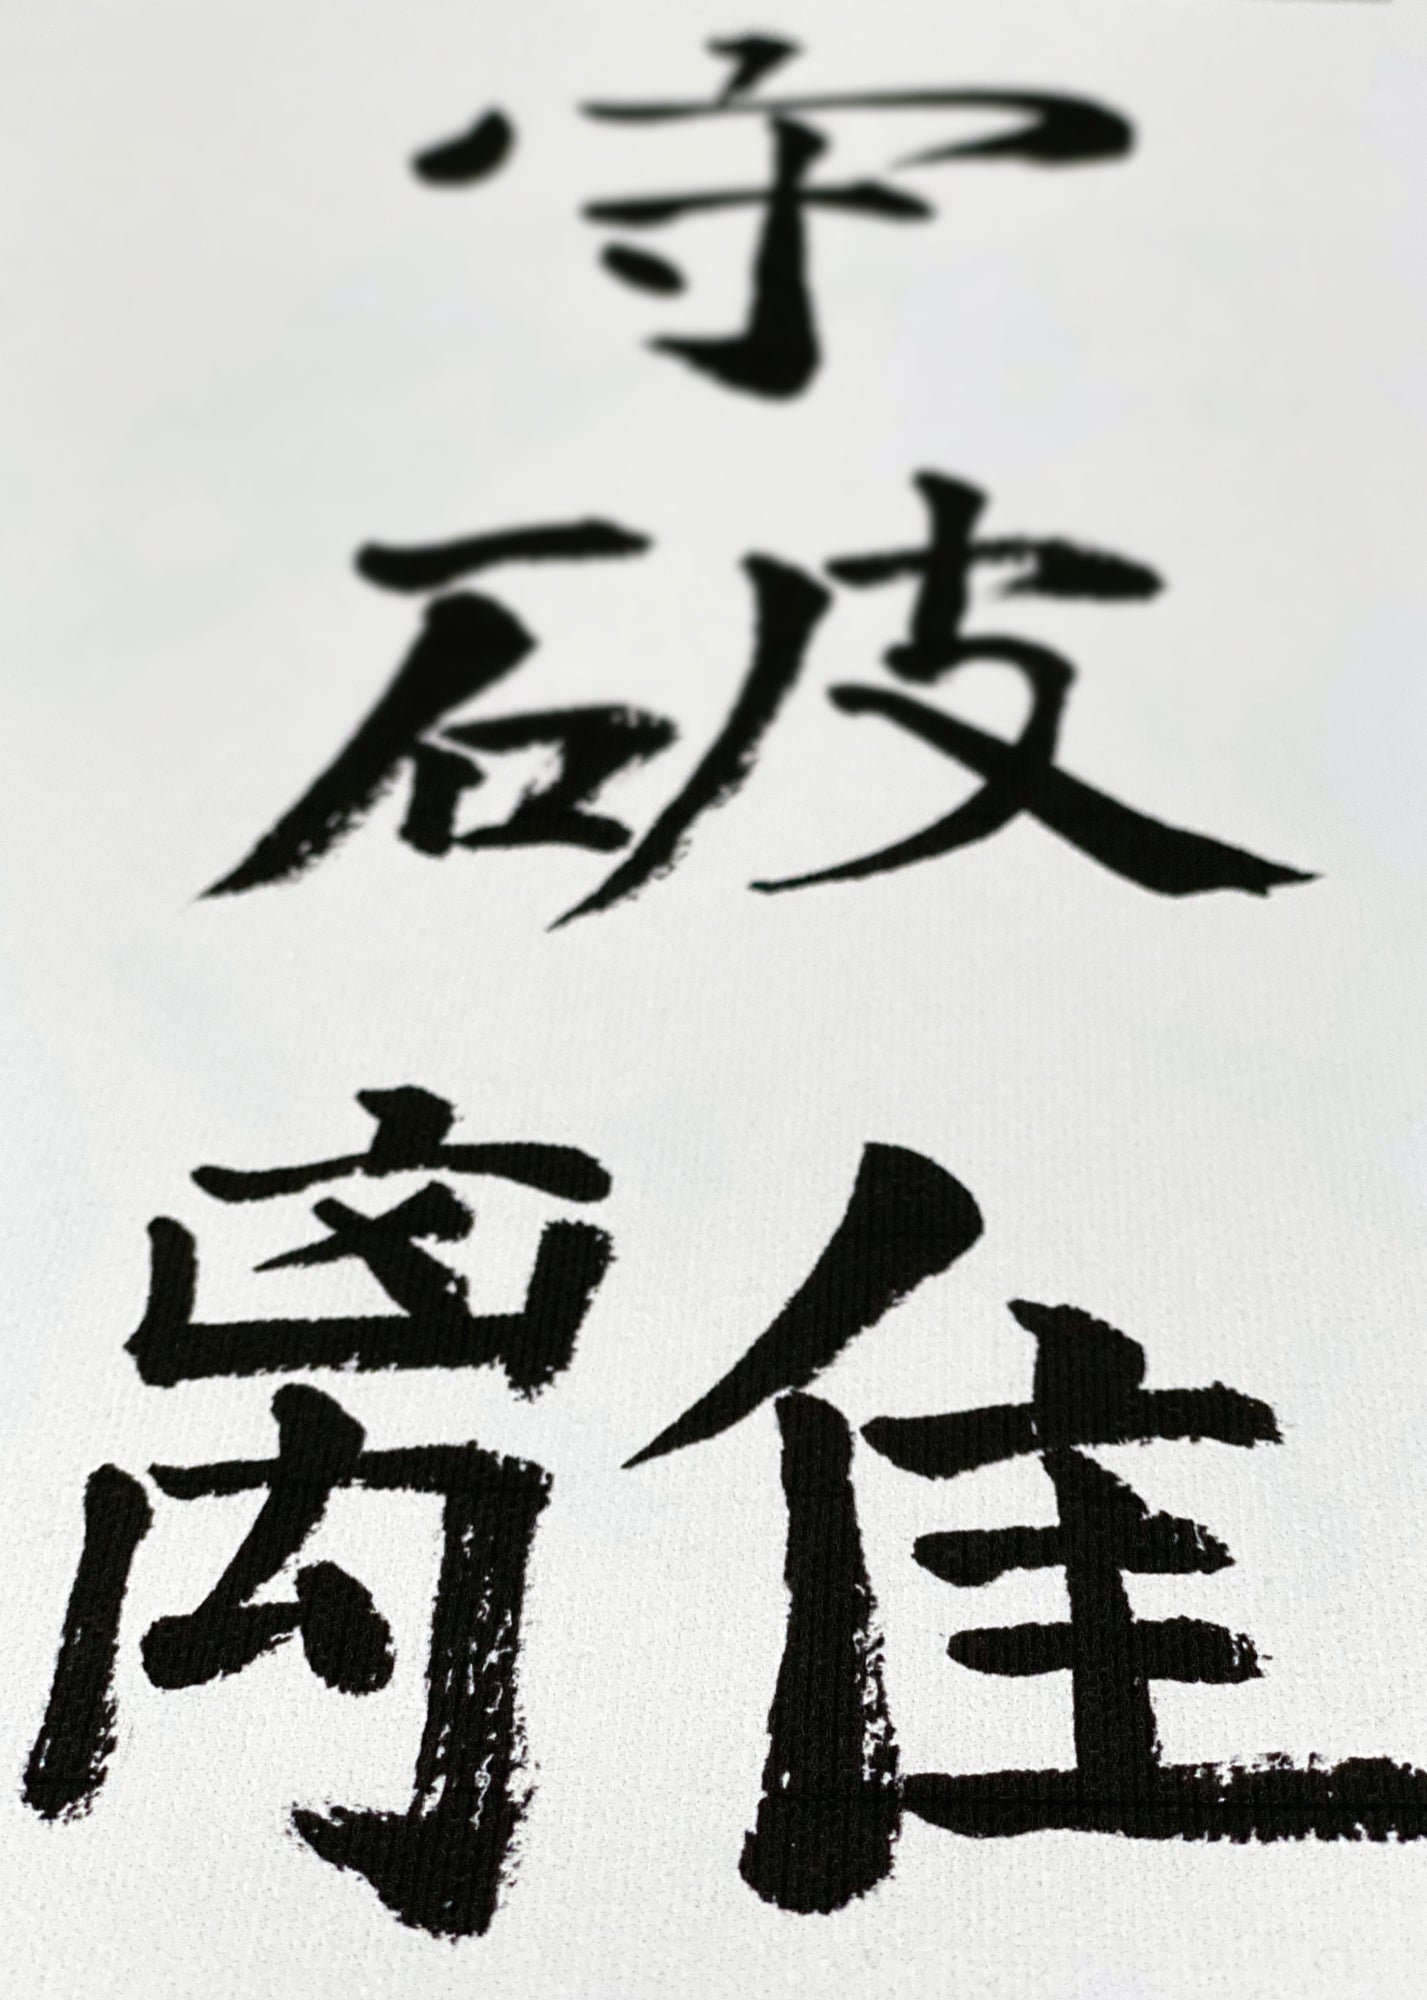 守
破
離